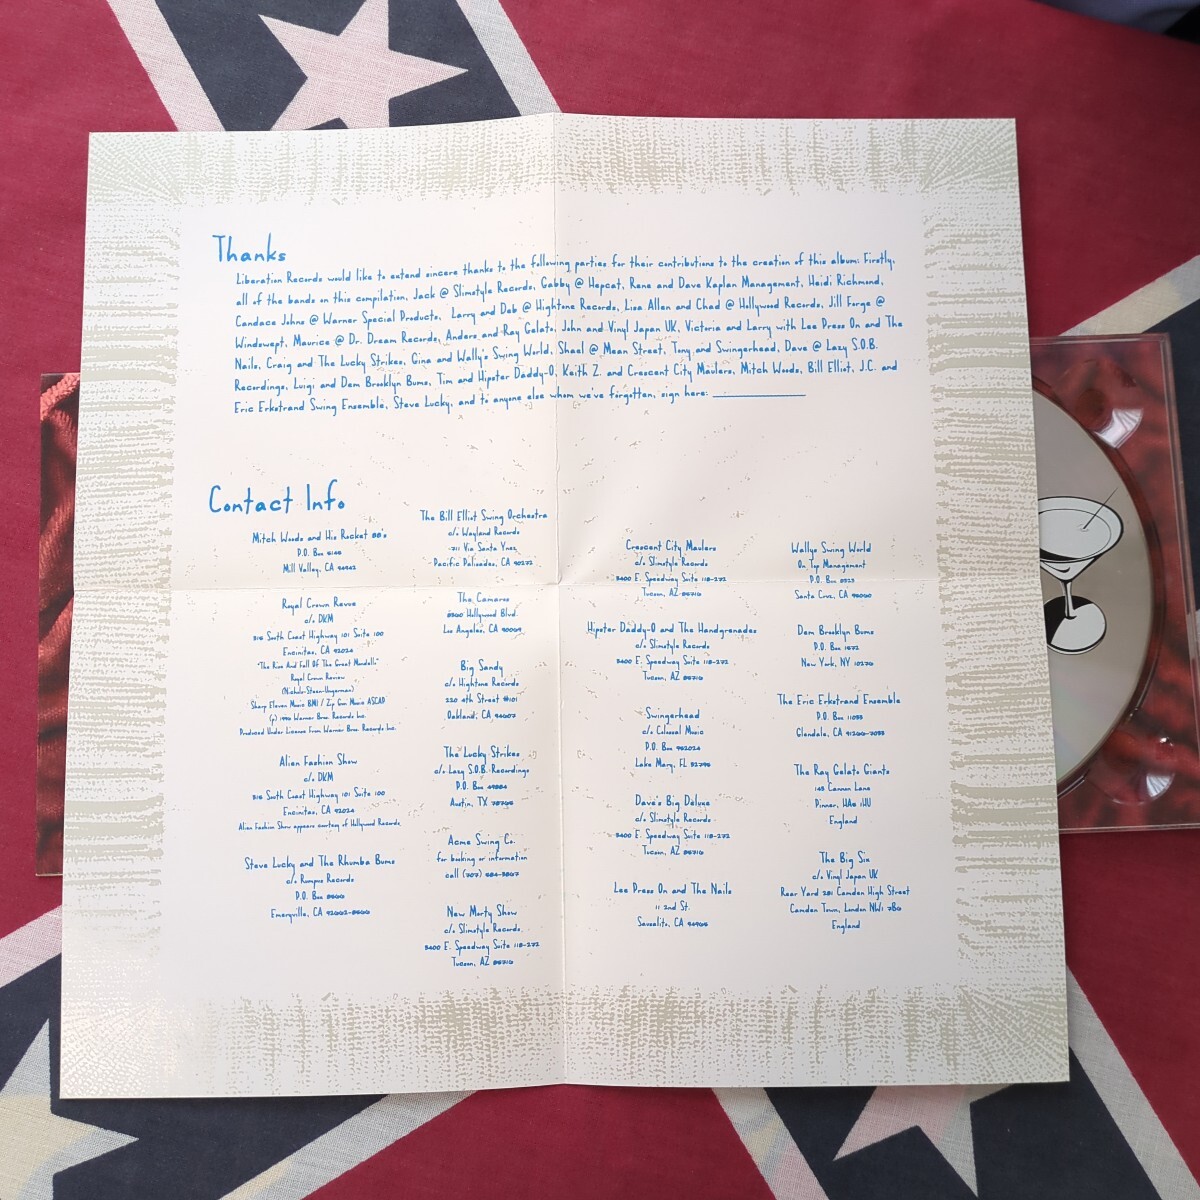 Thanks
Liberation Records would like to extend sincere thanks to the following parties for their contributions to the creation of this album: Firstly,
all of the bands on this compilation, Jack @ Slimstyle Records, Gabby @ Hepcat, Rene and Dave Kaplan Management, Heidi Richmond,
Candace Johns @ Warner Special Products, Larry and Deb @ Hightone Records, Lisa Allen and Chad @ Hollywood Records, Jill Forge @
Windswept, Maurice @ Dr. Dream Records, Anders and Ray Gelato, John and Vinyl Japan UK, Victoria and Larry with Lee Press On and The
Nails, Craig and The Lucky Strikes, Gina and Wally's Swing World, Shael @ Mean Street, Tony and Swingerhead, Dave @ Lazy S.O.B.
Recordings, Luigi and Dem Brooklyn Bums, Tim and Hipster Daddy-O, Keith Z. and Crescent City Maulers, Mitch Woods, Bill Elliot, J.C. and
Eric Erkstrand Swing Ensemble, Steve Lucky, and to anyone else whom we've forgotten, sign here:
Contact Info
Mitch Woods and His Rocket 88's
P.O. Box
Mill Valley, CA 94942
Royal Crown Revue
c/o DKM
South Coast Highway 101 Suite 100
Encinitas, CA 92024
"The Rise And Fall Of The Great Mondello"
Royal Crown Review
Sharp Eleven Music BMI / Zip Gun Music ASCAP
(p) Warner Bros. Records Inc.
Produced Under License From Warner Bros. Records Inc.
Alien Fashion Show
c/o DKM
South Coast Highway 101 Suite 100
Encinitas, CA 92024
Alien Fashion Show appears courtesy of Hollywood Records.
Steve Lucky and The Rhumba Bums
c/o Rumpus Records
P.O. Box
Emeryville, CA
The Bill Elliot Swing Orchestra
c/o Wayland Records
711 Via Santa Ynez
Pacific Palisades, CA 90272
The Camaros
Hollywood Blvd.
Los Angeles, CA
Big Sandy
c/o Hightone Records
220 4th Street #101
Oakland, CA 94607
The Lucky Strikes
c/o Lazy S.O.B. Recordings
P.O. Box
Austin, TX
Acme Swing Co.
for booking or information
call (707)
New Morty Show
c/o Slimstyle Records
E. Speedway Suite 118-272
Tucson, AZ 85716
Crescent City Maulers
c/o Slimstyle Records
E. Speedway Suite 118-272
Tucson, AZ 85716
Hipster Daddy-O and The Handgrenades
c/o Slimstyle Records
E. Speedway Suite 118-272
Tucson, AZ 85716
Swingerhead
c/o Colossal Music
P.O. Box
Lake Mary, FL
Dave's Big Deluxe
c/o Slimstyle Records
E. Speedway Suite 118-272
Tucson, AZ 85716
Lee Press On and The Nails
11 2nd St.
Sausalito, CA
Wallys Swing World
On Top Management
P.O. Box
Santa Cruz, CA
Dem Brooklyn Bums
P.O. Box 1572
New York, NY
The Eric Erkstrand Ensemble
P.O. Box
Glendale, CA
The Ray Gelato Giants
Cannon Lane
Pinner, HA5 1HU
England
The Big Six
c/o Vinyl Japan UK
Rear Yard 281 Camden High Street
Camden Town, London NW1 7BG
England